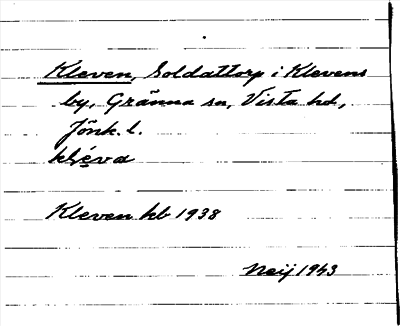 Kleven, Soldattorp i Klevens
by, Gränna sn, Vista hd,
Jönk. l.
Kleven kb 1938
Neij 1943